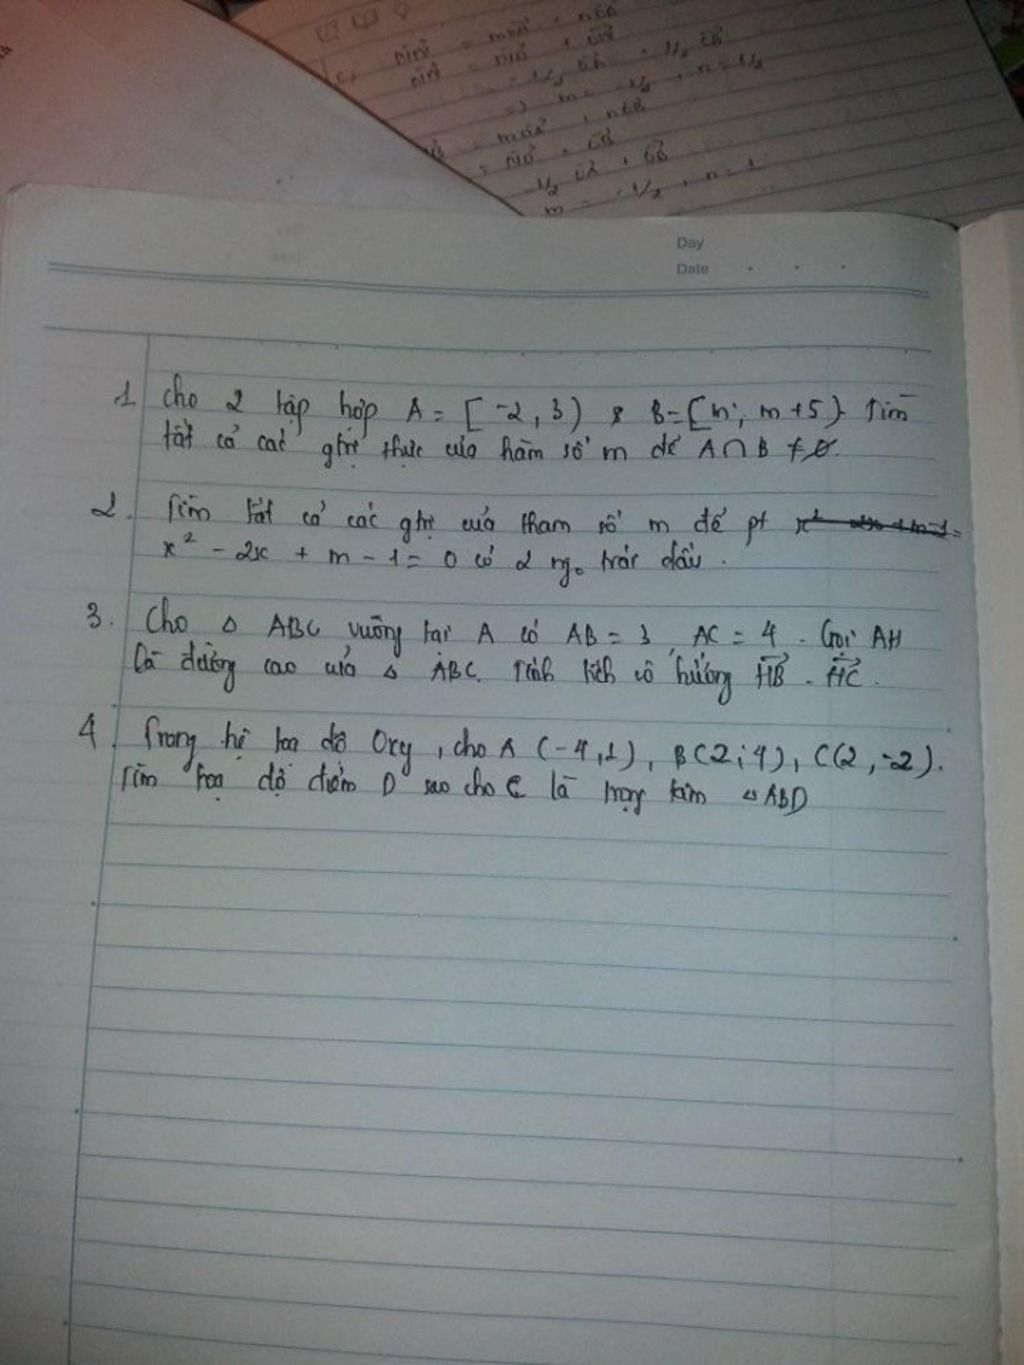 = 1/2
m = -1/2, n = 1/2
-1/2
m = -1/2, n = 1
Day
Date
1. Cho 2 tập hợp A = [-2, 3) & B = [m; m+5). Tìm
tất cả các gtrị thực của hàm số m để A ∩ B ≠ ∅.
2. Tìm tất cả các gtrị của tham số m để pt
x² - 2x + m - 1 = 0 có 2 ng₀ trái dấu.
3. Cho △ ABC vuông tại A có AB = 3, AC = 4. Gọi AH
là đường cao của △ ABC. Tính tích vô hướng HB . HC.
4. Trong hệ toạ độ Oxy, cho A (-4,1), B(2;4), C(2,-2).
Tìm toạ độ điểm D sao cho C là trọng tâm △ABD